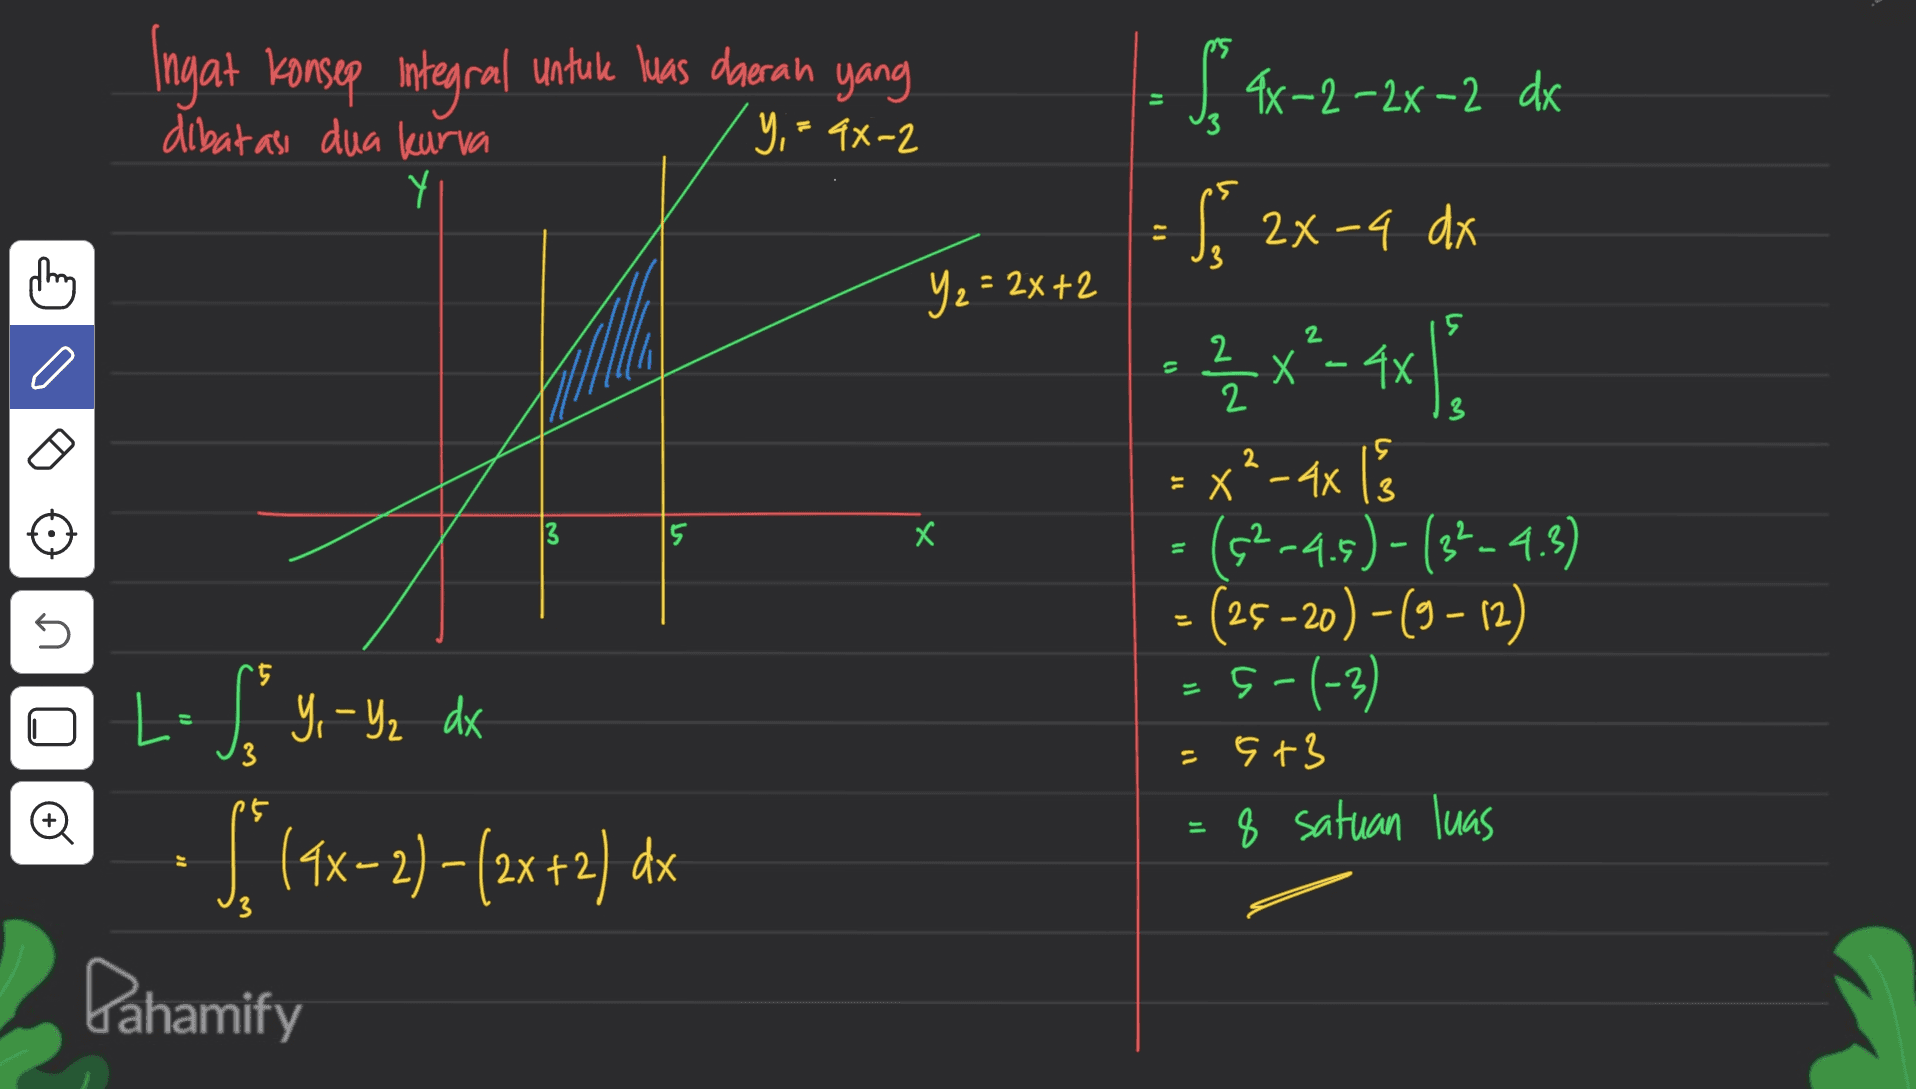 Ingat konsep integral untuk luas daerah yang
dibatasi dua kurva
y₁ = 4x-2
Y
y₂ = 2x+2
3 5 X
L = ∫₃⁵ y₁-y₂ dx
= ∫₃⁵ (4x-2)-(2x+2) dx
= ∫₃⁵ 4x-2-2x-2 dx
= ∫₃⁵ 2x-4 dx
= 2/2 x²-4x |₃⁵
= x²-4x |₃⁵
= (5²-4.5)-(3²-4.3)
= (25-20)-(9-12)
= 5-(-3)
= 5+3
= 8 satuan luas
Pahamify